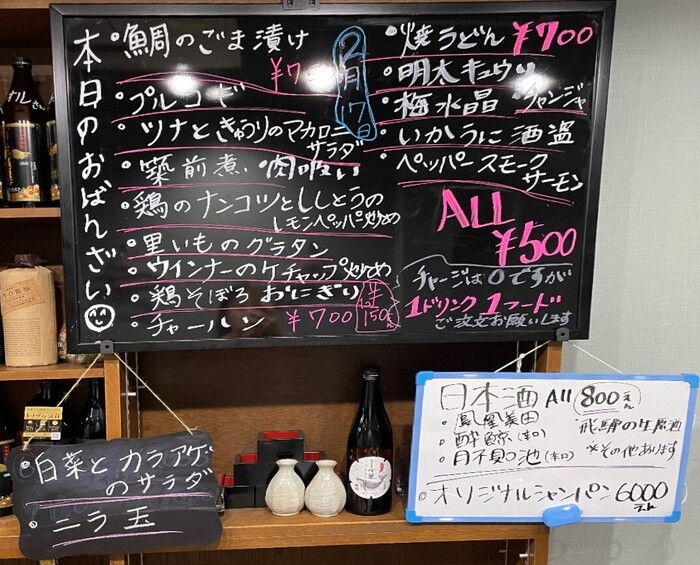 本日のおばんざい
・鯛のごま漬け
2月17日
・プルコギ
・ツナときゅうりのマカロニ
サラダ
・築前煮・肉吸い
・鶏のナンコツとししとうの
レモンペッパー炒め
・里いものグラタン
・ウインナーのケチャップ炒め
・鶏そぼろ おにぎり
1ヶ 150えん
・チャーハン ¥700
・焼うどん ¥700
・明太キュウリ
・梅水晶 チャンジャ
・いかうに 酒盗
・ペッパー スモーク
サーモン
ALL
¥500
チャージは0ですが
1ドリンク 1フード
ご注文お願いします
・白菜と カラアゲ
のサラダ
・ニラ玉
日本酒 All 800えん
・鳳凰美田
・酔鯨(辛口)
・月不見の池(辛口)
・飛騨の生原酒
※その他あります
・オリジナルシャンパン 6000
えん